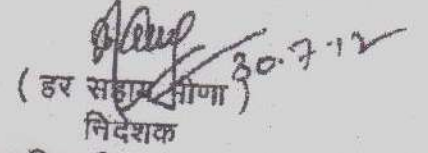 30.7.12
( हर सहाय मीणा )
निदेशक